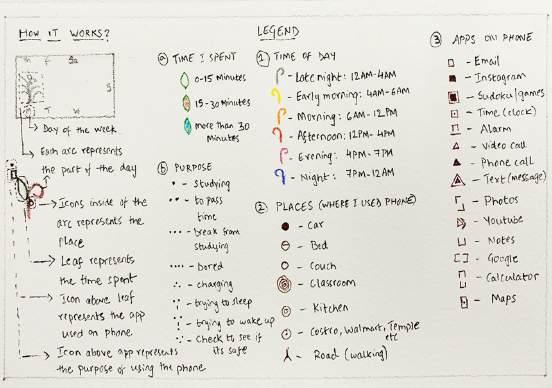 HOW IT WORKS?
M F Sa
S
T W
Day of the week
Each arc represents
the part of the day
Icons inside of the
arc represents the
place
Leaf represents
the time spent
Icon above leaf
represents the app
used on phone.
Icon above app represents
the purpose of using the phone
LEGEND
a TIME I SPENT
0-15 minutes
15-30 minutes
more than 30
minutes
b PURPOSE
- studying
- to pass
time
- break from
studying
- bored
- charging
- trying to sleep
- trying to wake up
- Check to see if
its safe
1 TIME OF DAY
- Late night: 12AM-4AM
- Early morning: 4AM-6AM
- Morning: 6AM-12PM
- Afternoon: 12PM-4PM
- Evening: 4PM-7PM
- Night: 7PM-12AM
2 PLACES (WHERE I USED PHONE)
- Car
- Bed
- Couch
- Classroom
- Kitchen
- Costco, Walmart, Temple
etc
- Road (walking)
3 APPS ON PHONE
- Email
- Instagram
- Sudoku/games
- Time (clock)
- Alarm
- Video call
- Phone call
- Text (message)
- Photos
- Youtube
- Notes
- Google
- Calculator
- Maps